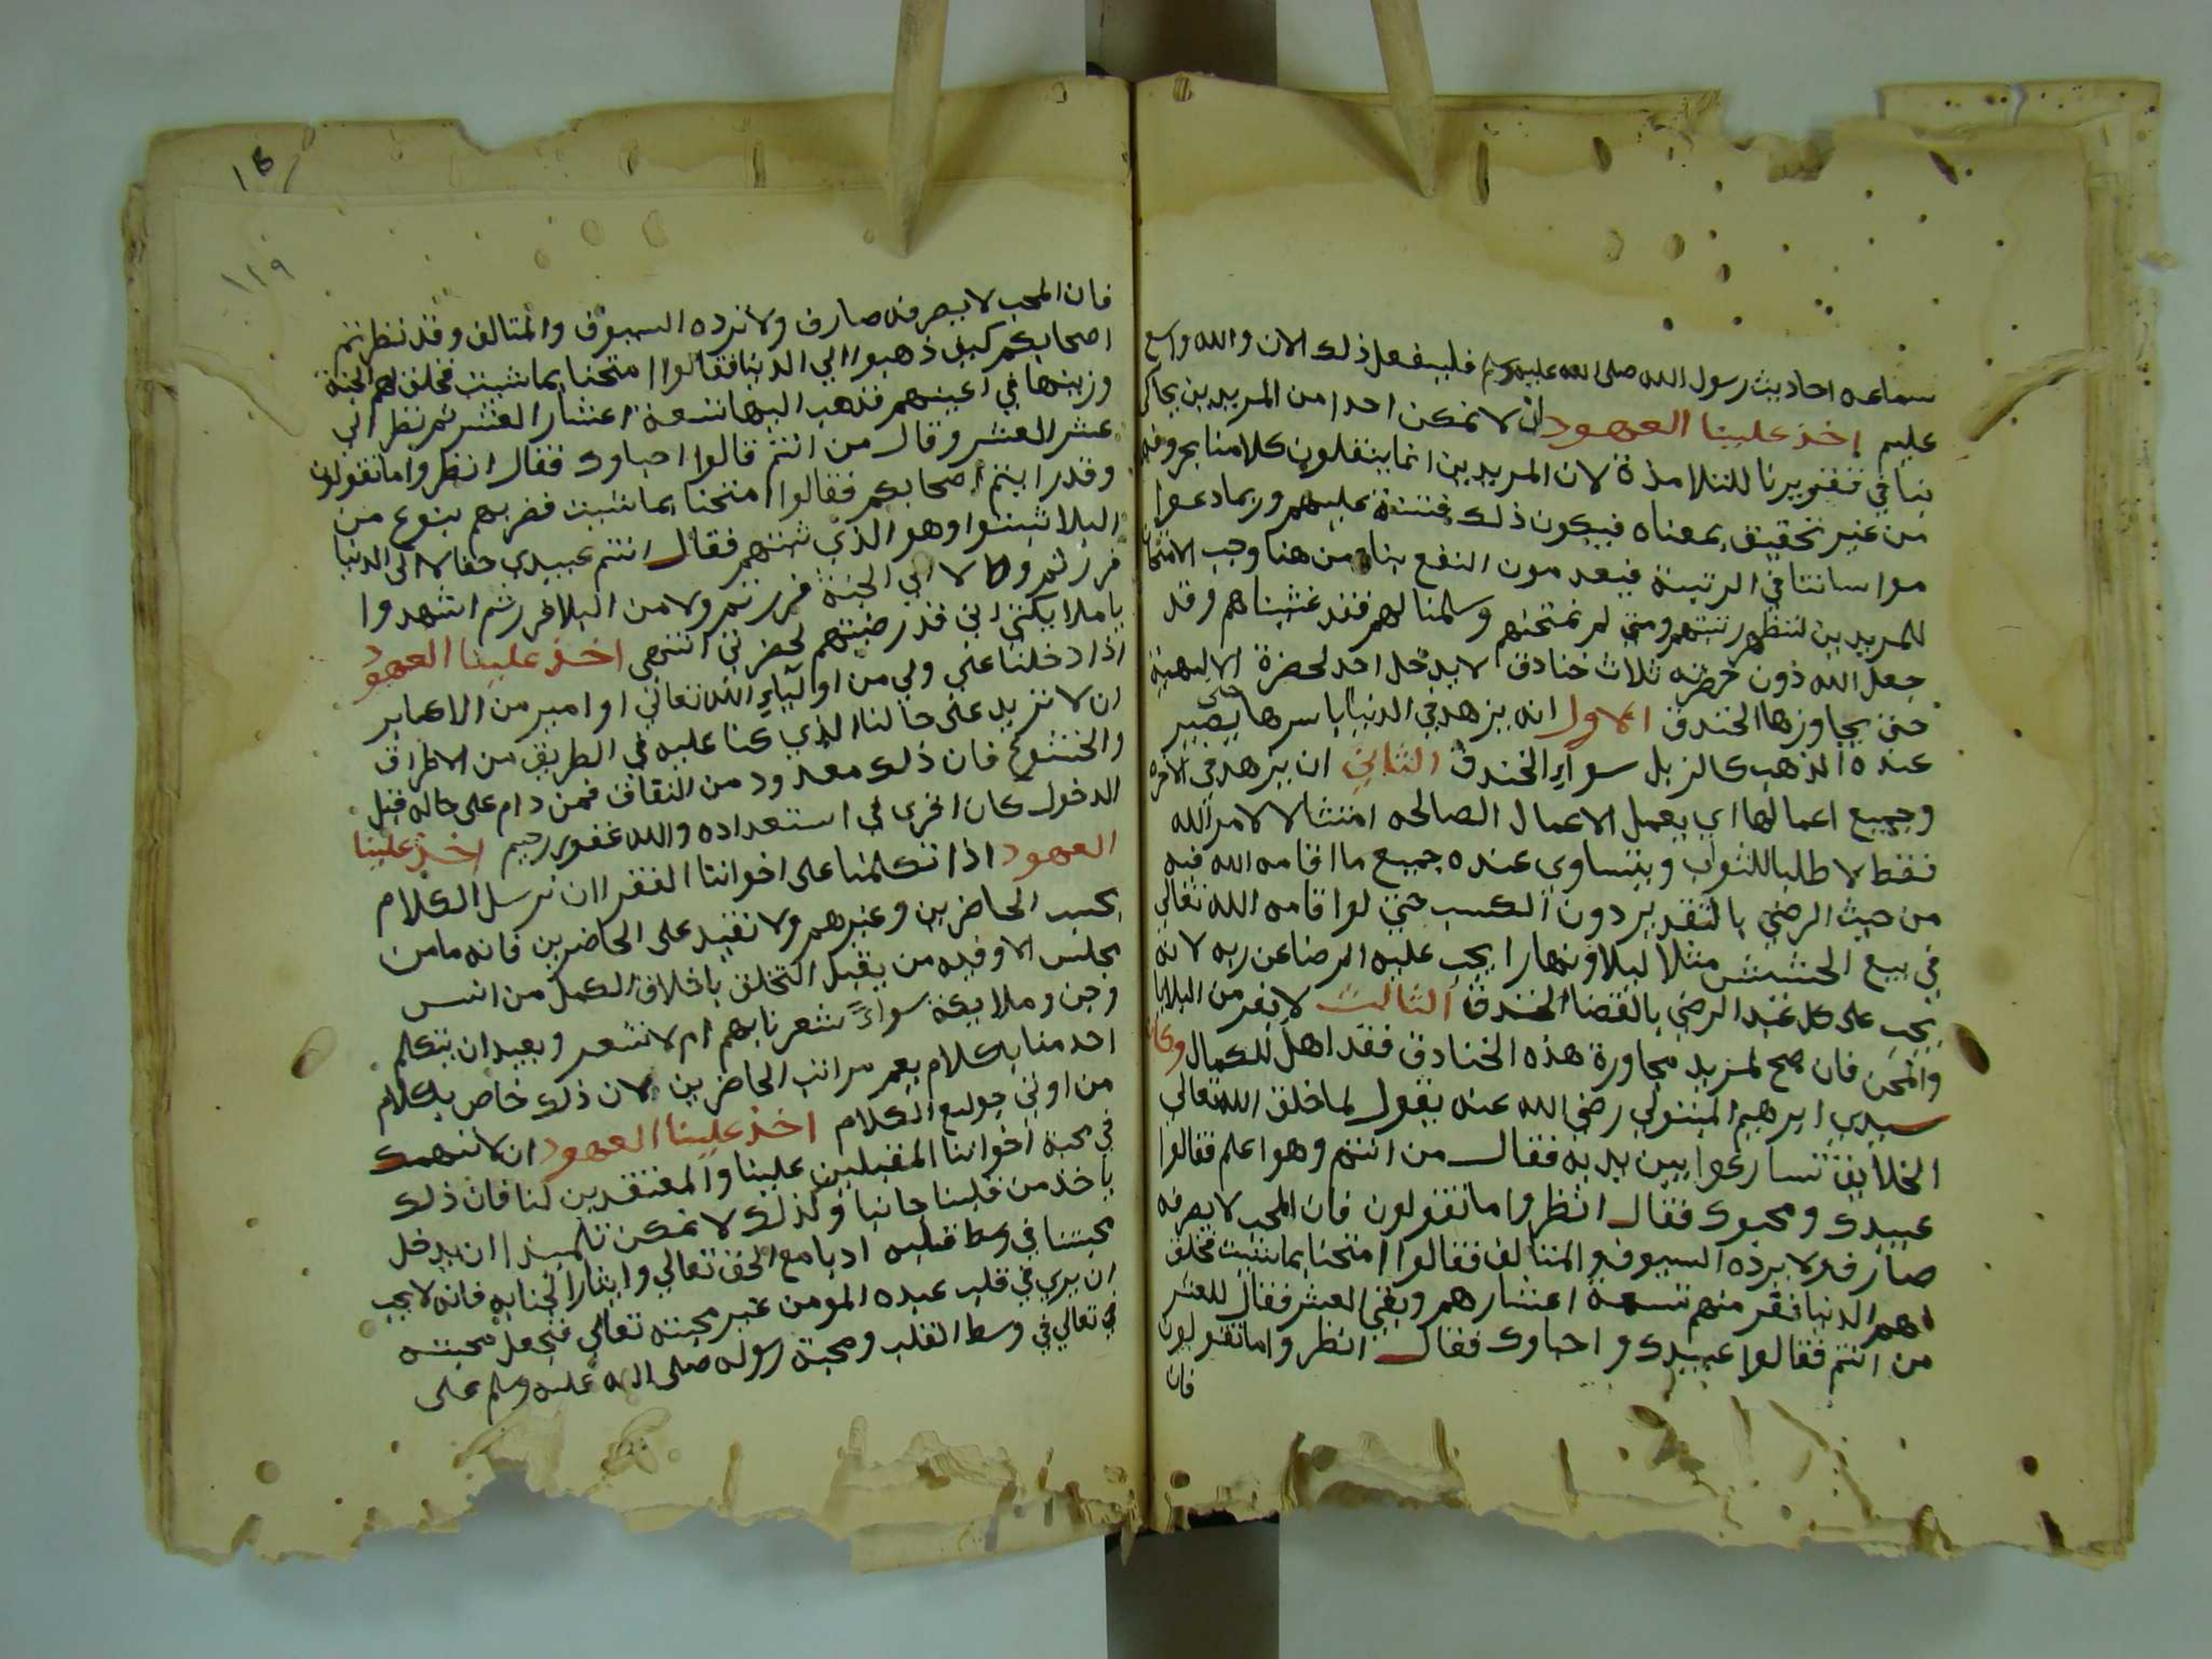 سماعه احاديث رسول الله صلى الله عليه وسلم فليفعل ذلك الان والله واسع
عليم اخذ علينا العهود ان لا نمكن احدا من المريدين يحاكي
بنا في تقريرنا للتلامذة لان المريدين انما ينقلون كلامنا بحروفه
من غير تحقيق بمعناه فيكون ذلك فتنة عليهم وربما دعوا
مواساتنا في الرتبة فيعدمون النفع بنا ومن هنا وجب الامتحان
للمريدين لتظهر رتبتهم ومتي لم نمتحنهم وسلمنا لهم فقد غشيناهم وقد
جعل الله دون حضرته ثلاث خنادق لا يدخل احد لحضرة الالهية
حتى يجاوزها الخندق الاول انه يزهد في الدنيا باسرها حتى يصير
عنده الذهب كالزبل سواء الخندق الثاني ان يزهد في الاخرة
وجميع اعمالها اي يعمل الاعمال الصالحه امتثالا لامر الله
فقط لا طلبا للثواب ويتساوى عنده جميع ما اقامه الله فيه
من حيث الرضي بالتقدير دون الكسب حتى لو اقامه الله تعالى
في بيع الحشيش مثلا ليلا ونهارا يجب عليه الرضا عن ربه لانه
يجب على كل عبد الرضي بالقضا الخندق الثالث لا يفر من البلايا
والمحن فان صح لمريد مجاورة هذه الخنادق فقد اهل للكمال وكان
سيدي ابرهيم المتبولي رضي الله عنه يقول لما خلق الله تعالى
الخلايق تسارعوا بين يديه فقال من انتم وهو اعلم فقالوا
عبيدك ومحبوك فقال انظروا ما تقولون فان المحب لا يصرفه
صارف ولا يرده السيوف والمتالف فقالوا امتحنا بما شيت فخلق
لهم الدنيا ففر منهم تسعة اعشارهم وبقي العشر فقال للعشر
من انتم فقالوا عبيدك واحباوك فقال انظروا ما تقولون
فان
١١٩
فان المحب لا يصرفه صارف ولا ترده السيوف والمتالف وقد نظرتم
اصحابكم كيف ذهبوا الي الدنيا فقالوا امتحنا بما شيت فخلق لهم الجنة
وزينها في اعينهم فذهب اليها تسعة اعشار العشر ثم نظر الي
عشر العشر وقال من انتم قالوا احباوك فقال انظروا ما تقولون
وقد رايتم اصحابكم فقالوا امتحنا بما شيت فضربهم بنوع من
البلا ثبتوا وهو الذي ثبتهم فقال انتم عبيدي حقا لا الى الدنيا
فررتم ولا لا الي الجنة فررتم ولا من البلا فررتم اشهدوا
يا ملايكتي اني قد رضيتهم لحضرتي انتهى اخذ علينا العهود
اذا دخلنا على ولي من اولياء الله تعالى او امير من الاكابر
ان لا نزيد على حالنا الذي كنا عليه في الطريق من الاطراق
والخشوع فان ذلك معدود من النفاق فمن دام على حاله قبل
الدخول كان احرى في استعداده والله غفور رحيم اخذ علينا
العهود اذا تكلمنا على اخواننا الفقرا ان نرسل الكلام
بحسب الحاضرين وغيرهم ولا نقيد على الحاضرين فانه ما من
مجلس الا وفيه من يقبل التخلق باخلاق الكمل من انس
وجن وملايكة سواء شعرنا بهم ام لا نشعر وبعيد ان يتكلم
احد منا بكلام يعم مراتب الحاضرين لان ذلك خاص بكلام
من اوتي جوامع الكلام اخذ علينا العهود ان لا ننهمك
في محبة اخواننا المقبلين علينا والمعتقدين لنا فان ذلك
ياخذ من قلبنا جانبا وكذلك لا نمكن تلميذا ان يدخل
محبتنا في وسط قلبه ادبا مع الحق تعالى وايثارا لجنابه فانه لا يحب
ان يري في قلب عبده المومن غير محبته تعالى فنجعل محبته
تعالى في وسط القلب ومحبة رسوله صلى الله عليه وسلم على